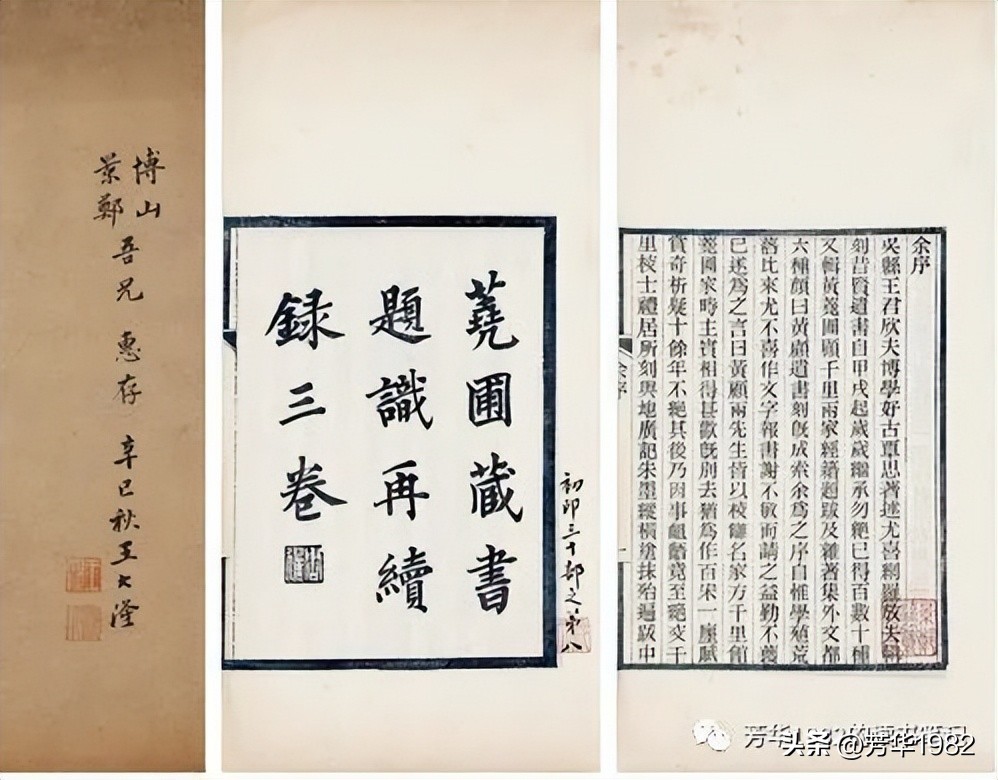 博山
景鄭
吾兄 惠存 辛巳秋王大隆
蕘圃藏書
題識再續
録三卷
初印三十部之第八
余序
吳縣王君欣夫博學好古覃思著述尤喜網羅放失輯
刻昔賢遺書自甲戌起歲歲繼承勿絕已得百數十種
又輯黃蕘圃顧千里兩家經籍題跋及雜著集外文都
六種顏曰黃顧遺書刻旣成索余爲之序自惟學殖荒
落比來尤不喜作文字報書謝不敏而請之益勤不獲
已遂爲之言曰黃顧兩先生皆以校讎名家方千里館
蕘圃家時主賓相得甚歡旣別去猶爲作百宋一廛賦
賞奇析疑十餘年不絕其後乃因事齟齬竟至絕交千
里校士禮居所刻輿地廣記朱墨縱橫塗抹殆遍跋中
余序
头条 @芳华1982